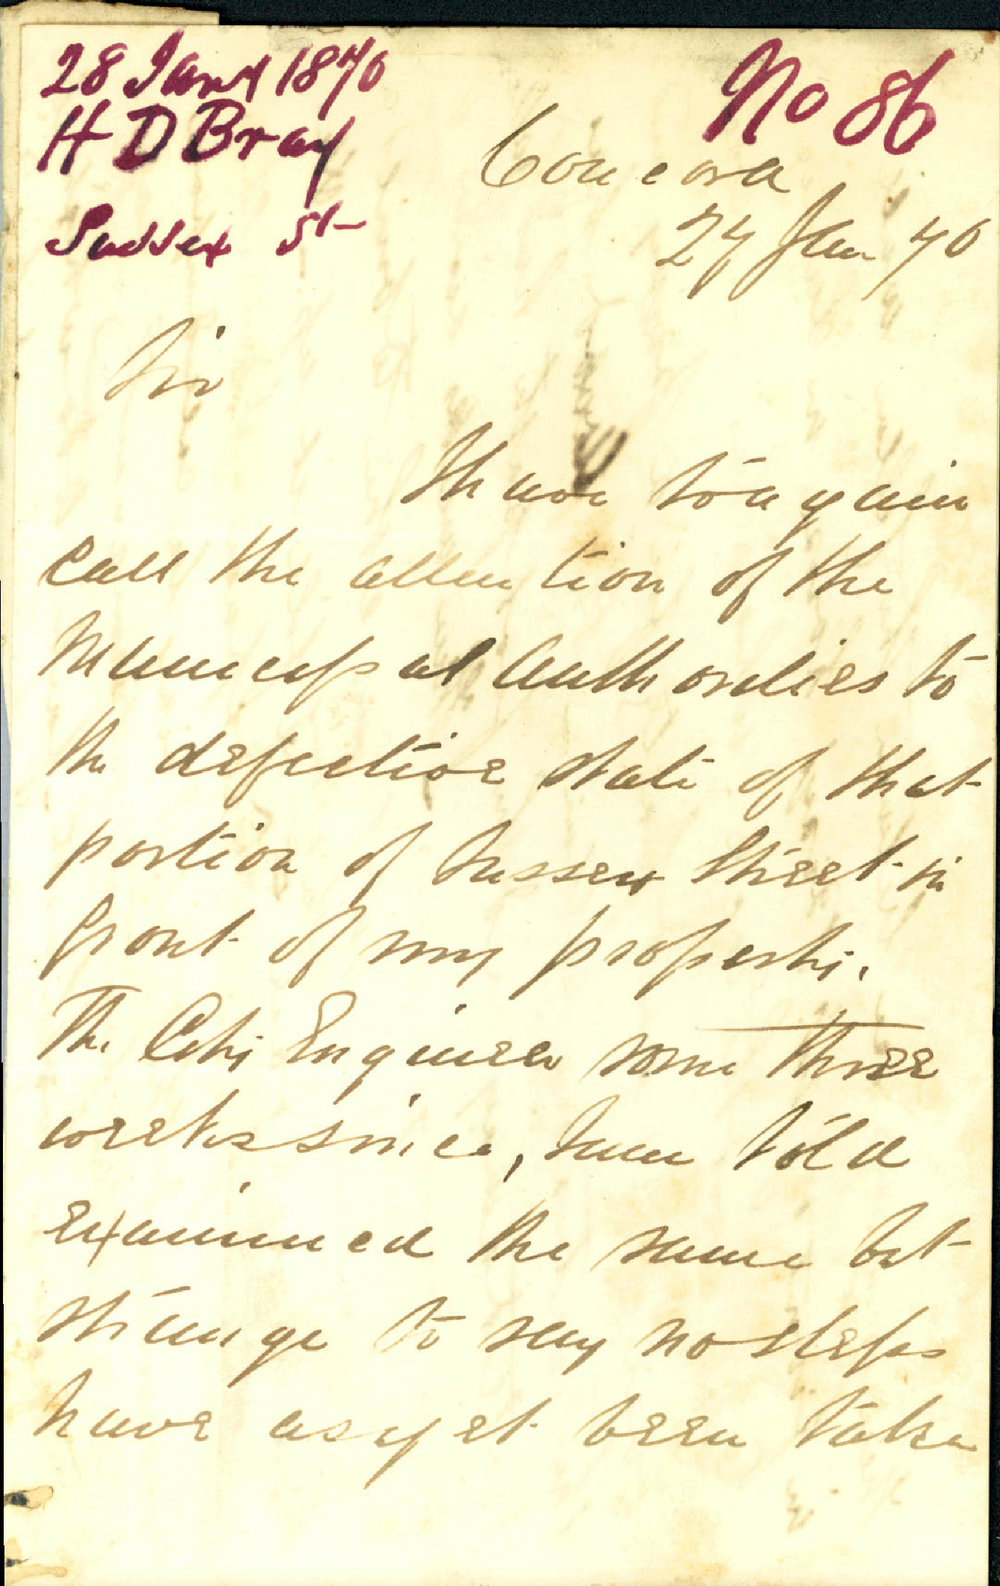 28 Jany 1870
No 86
H D Bray
Sussex St
Concord
27 Jan 70
Sir
I have to again
call the attention of the
Municipal authorities to
the defective state of that
portion of Sussex Street in
front of my property.
The City Engineer some three
weeks since, I am told
examined the same but
strange to say no steps
have as yet been taken